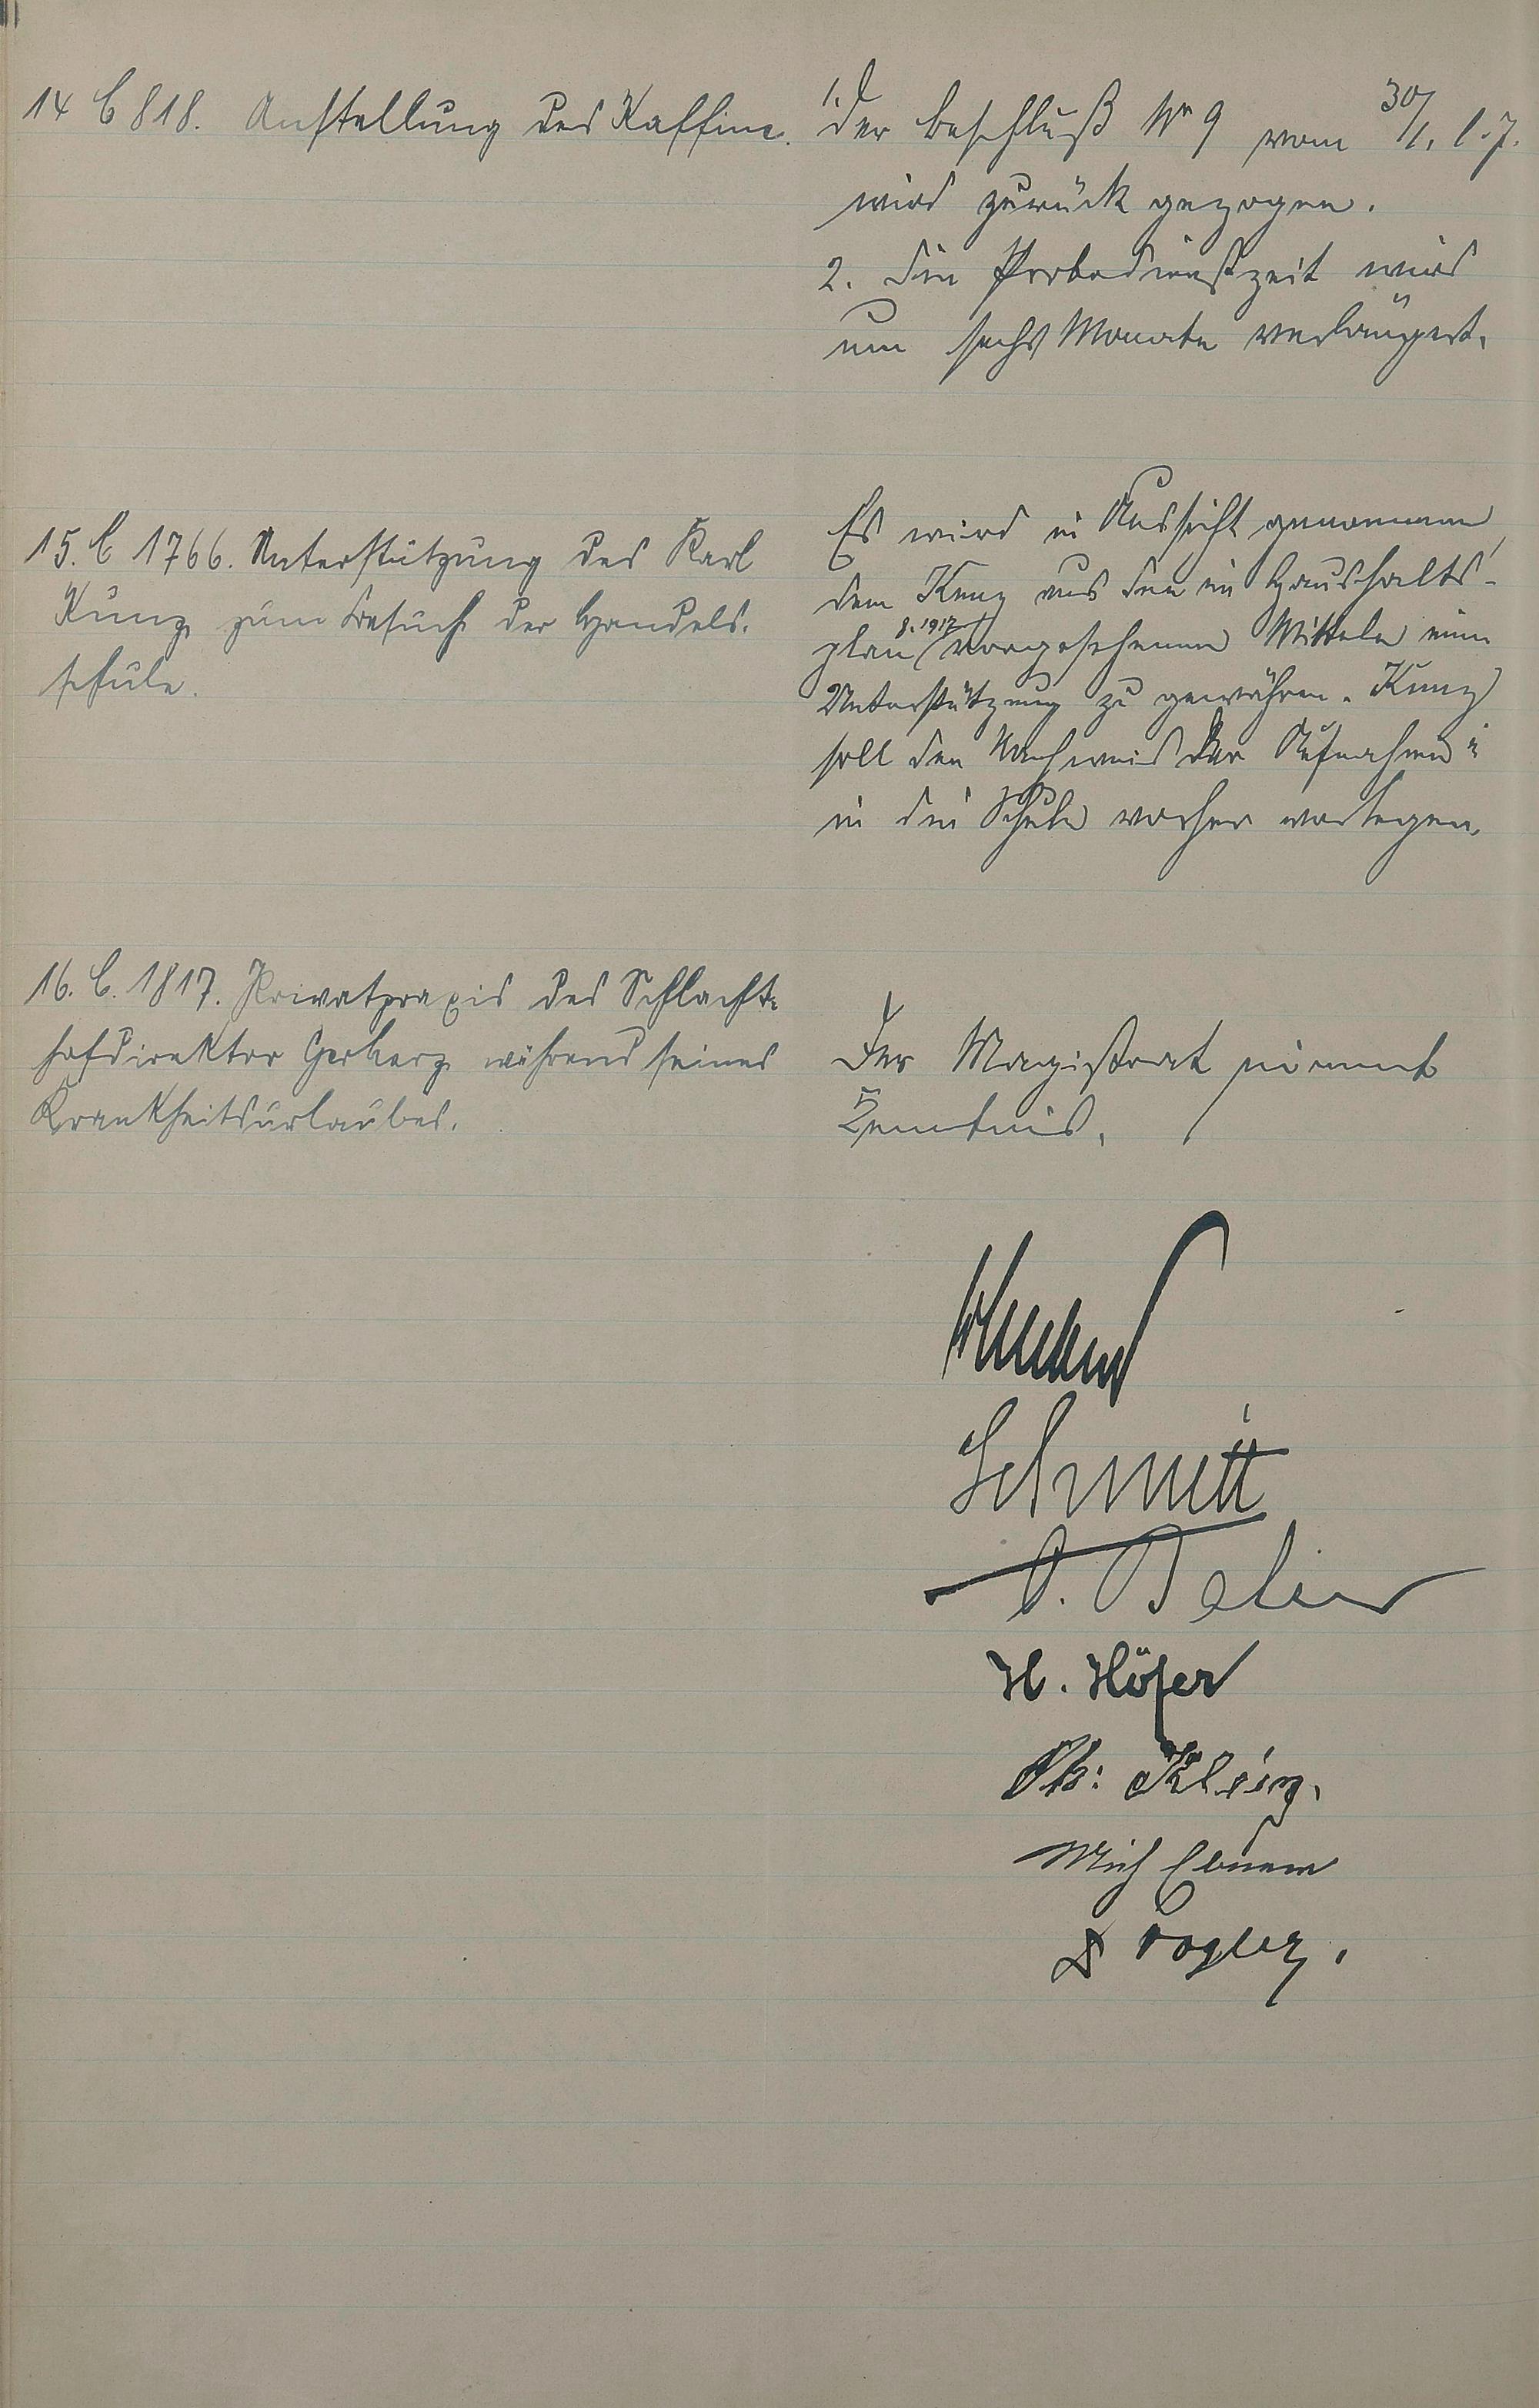 14 C 818. Anstellung des Kaffine.
1. Der Beschluß Nr 9 vom 30/1. l. J.
wird zurück gezogen.
2. Die Probedienstzeit wird
um sechs Monate verlängert.
15. C 1766. Unterstützung des Karl
Kunz zum Besuch der Handels-
schule.
Es wird in Aussicht genommen,
dem Kunz aus den im Haushalts-
plan f. 1917 vorgesehenen Mitteln eine
Unterstützung zu gewähren. Kunz
soll den Nachweis der Aufnahme
in die Schule vorher vorlegen.
16. C. 1817. Privatpraxis des Schlacht-
hofdirektor Gerberz während seines
Krankheitsurlaubes.
Der Magistrat nimmt
Kenntnis.
Schmitt
H. Höfer
Ph: Klein.
Mich
Vogler.